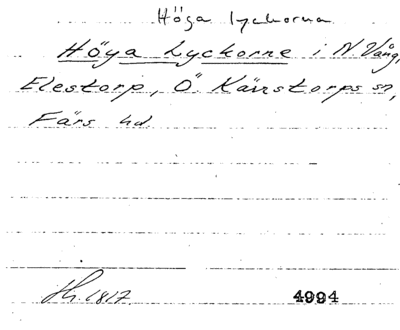 Höga lyckorna
Höga Lyckorne i N Vång,
Elestorp, Ö. Kärrstorps sn,
Färs hd
Hh. 1817. 4994